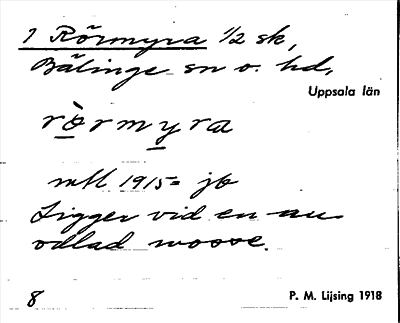 1 Rörmyra 1/2 sk,
Bälinge sn o. hd,
Uppsala län
rörmyra
mtl 1915 = jb
Ligger vid en nu
odlad mosse.
8
P. M. Lijsing 1918